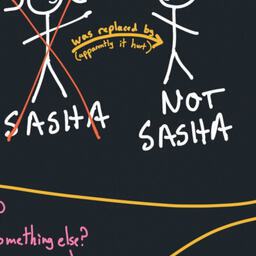 was replaced by
(apparently it hurt)
SASHA
NOT
SASHA
omething else?